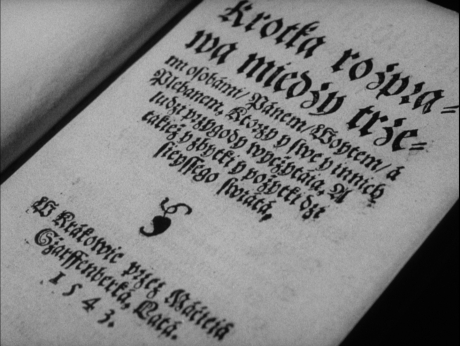 Krotka rożpra=
wa miedży trże=
mi osobámi/ Pánem/ Woytem/ á
Plebanem, Ktorzy y swe y innich
ludzi przygody wyczytáią, A
takież y zbytki y pożytki dzi
sieyssego swiátá,
W Krákowie przez Máćieiá
Szarffenberká, Látá.
1543.